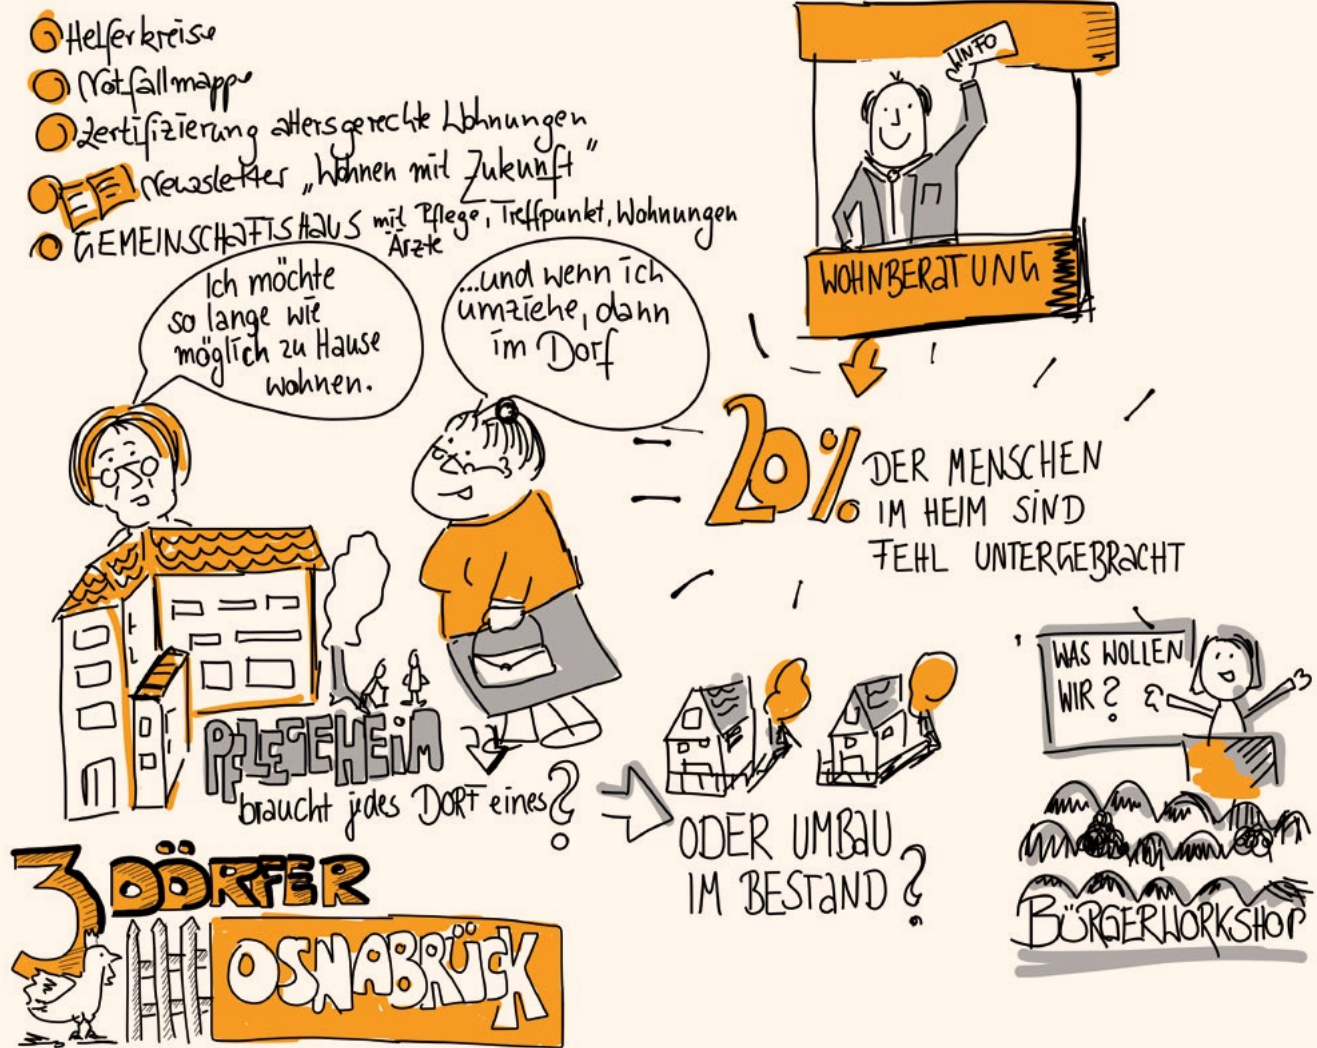 Helferkreise
Notfallmappe
Zertifizierung altersgerechte Wohnungen
Newsletter „Wohnen mit Zukunft"
GEMEINSCHAFTSHAUS mit Pflege, Treffpunkt, Wohnungen
Ärzte
INFO
WOHNBERATUNG
Ich möchte
so lange wie
möglich zu Hause
wohnen.
...und wenn ich
umziehe, dann
im Dorf
20% DER MENSCHEN
IM HEIM SIND
FEHL UNTERGEBRACHT
PFLEGEHEIM
braucht jedes DORF eines?
ODER UMBAU
IM BESTAND?
WAS WOLLEN
WIR?
BÜRGERWORKSHOP
3 DÖRFER
OSNABRÜCK